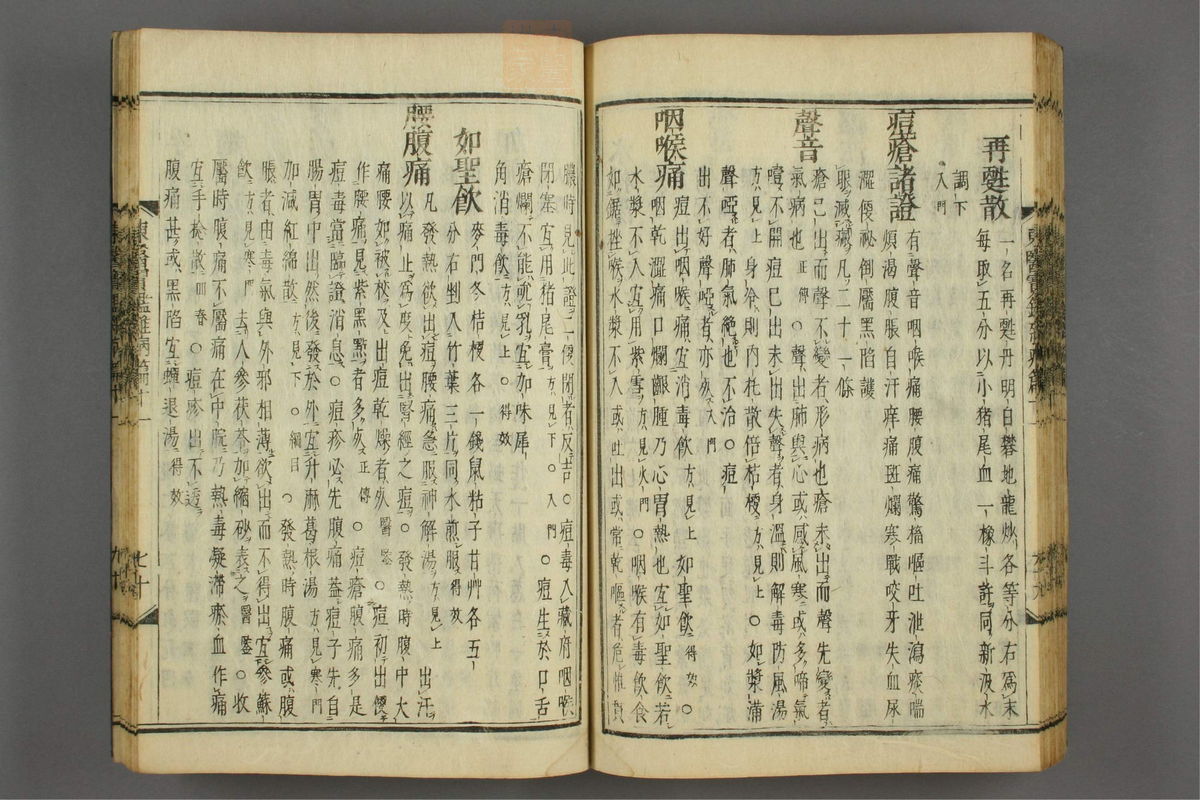 再甦散 一名再甦丹明白礬地龍炒各等分右爲末
每取五分以小猪尾血一橡斗許同新汲水
調下入門
痘瘡諸證 有聲音咽喉痛腰腹痛驚搐嘔吐泄瀉痰喘
煩渴腹脹自汗痒痛斑爛寒戰咬牙失血尿
澁便祕倒靨黑陷護
眼滅瘢凡二十一條
聲音 瘡已出而聲不變者形病也瘡未出而聲先變者
氣病也正傳○聲出肺與心或感風寒或多啼氣
噎不開痘已出未出失聲者身溫則解毒防風湯
方見上身冷則內托散倍桔梗方見上○如漿滿
聲啞者肺氣絶也不治○痘
出不好聲啞者亦然入門
咽喉痛 痘出咽喉痛宜消毒飮方見上如聖飮得效○
咽乾澁痛口爛齦腫乃心胃熱也宜如聖飮若
水漿不入宜用紫雪方見火門○咽喉有毒飮食
如鋸挫喉水漿不入或吐出或常乾嘔者危惟貫
膿時見此證二便閉者反吉○痘毒入藏府咽喉
閉塞宜用猪尾膏方見下○入門○痘生於口舌
瘡爛不能吮乳宜加味犀
角消毒飮方見上○得效
如聖飮 麥門冬桔梗各一錢鼠粘子甘艸各五
分右剉入竹葉三片同水煎服得效
腰腹痛 凡發熱欲出痘腰痛急服神解湯方見上出汗
以痛止爲度免出腎經之痘○發熱時腹中大
痛腰如被杖及出痘乾燥者死醫鑑○痘初出便
作腰痛見紫黑點者多死正傳○痘瘡腹痛多是
痘毒當臨證消息○痘疹必先腹痛盖痘子先自
腸胃中出然後發於外宜升麻葛根湯方見寒門
加減紅綿散方見下○綱目○發熱時腹痛或腹
脹者由毒氣與外邪相薄欲出而不得出宜參蘇
飮方見寒門去人參茯苓加縮砂表之醫鑑○收
靨時腹痛不靨痛在中脘乃熱毒凝滯瘀血作痛
宜手拈散回春○痘疹出不透
腹痛甚或黑陷宜蟬退湯得效